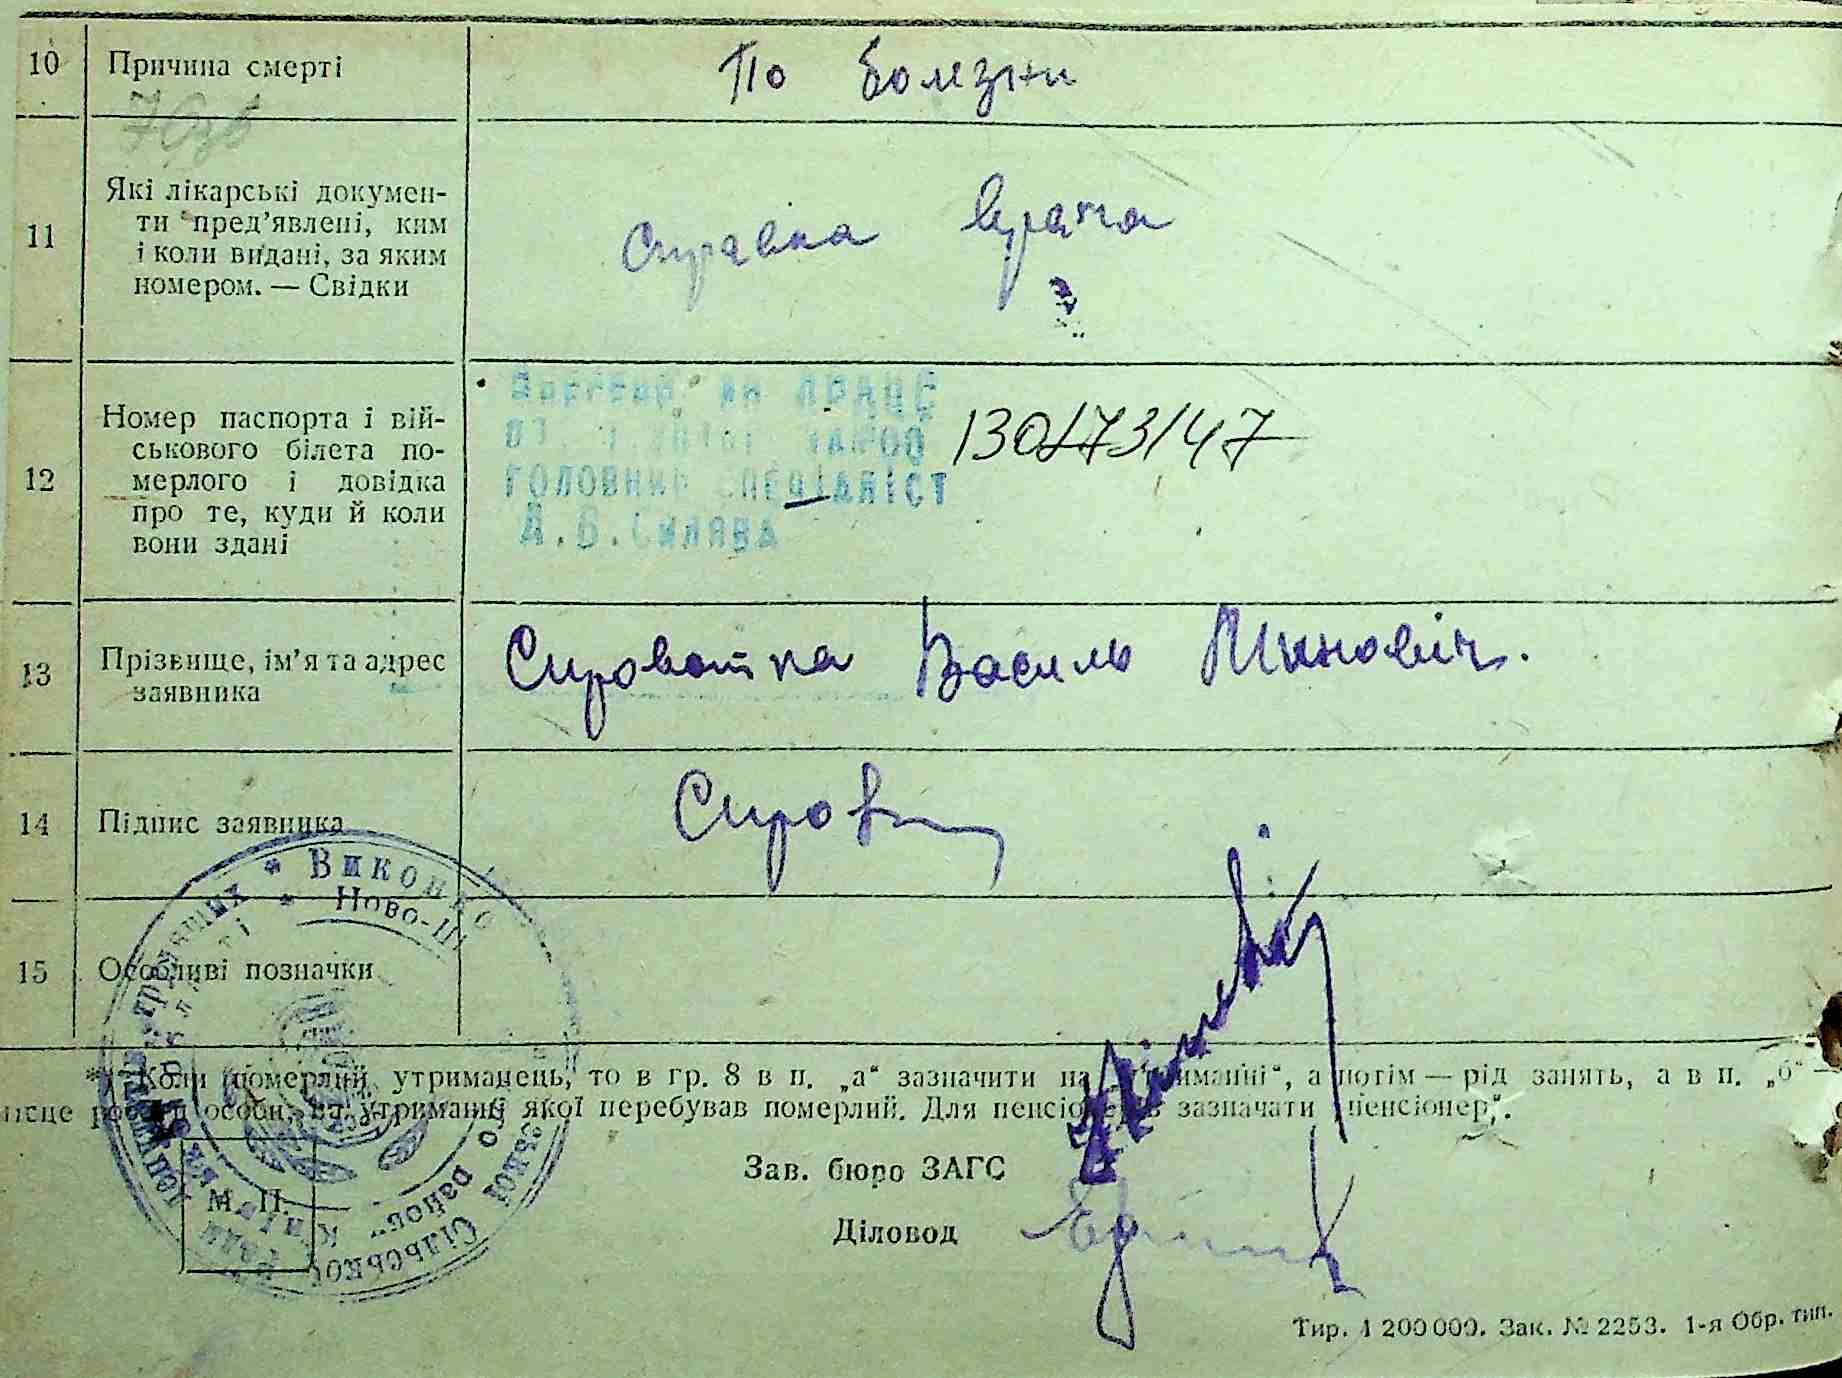 10 Причина смерті По болезни
11 Які лікарські докумен-
ти пред'явлені, ким
і коли видані, за яким
номером. — Свідки
Справка врача
12 Номер паспорта і вій-
ськового білета по-
мерлого і довідка
про те, куди й коли
вони здані
ГОЛОВНИЙ СПЕЦІАЛІСТ
А.В.Силява
130/73/47
13 Прізвище, ім'я та адрес
заявника
Сироватка Василь Минович.
14 Підпис заявника Сиров
15 Особливі позначки
*) Коли померлий утриманець, то в гр. 8 в п. „а“ зазначити на „утриманні“, а потім — рід занять, а в п. „б“ —
місце роботи особи, на утриманні якої перебував померлий. Для пенсіонерів зазначати „пенсіонер“.
Зав. бюро ЗАГС
М. П.
Діловод
Виконко
Ново-Ш
Сільської ради депутатів трудящих
Київ району області
Тир. 1 200 000. Зак. № 2253. 1-я Обр. тип.